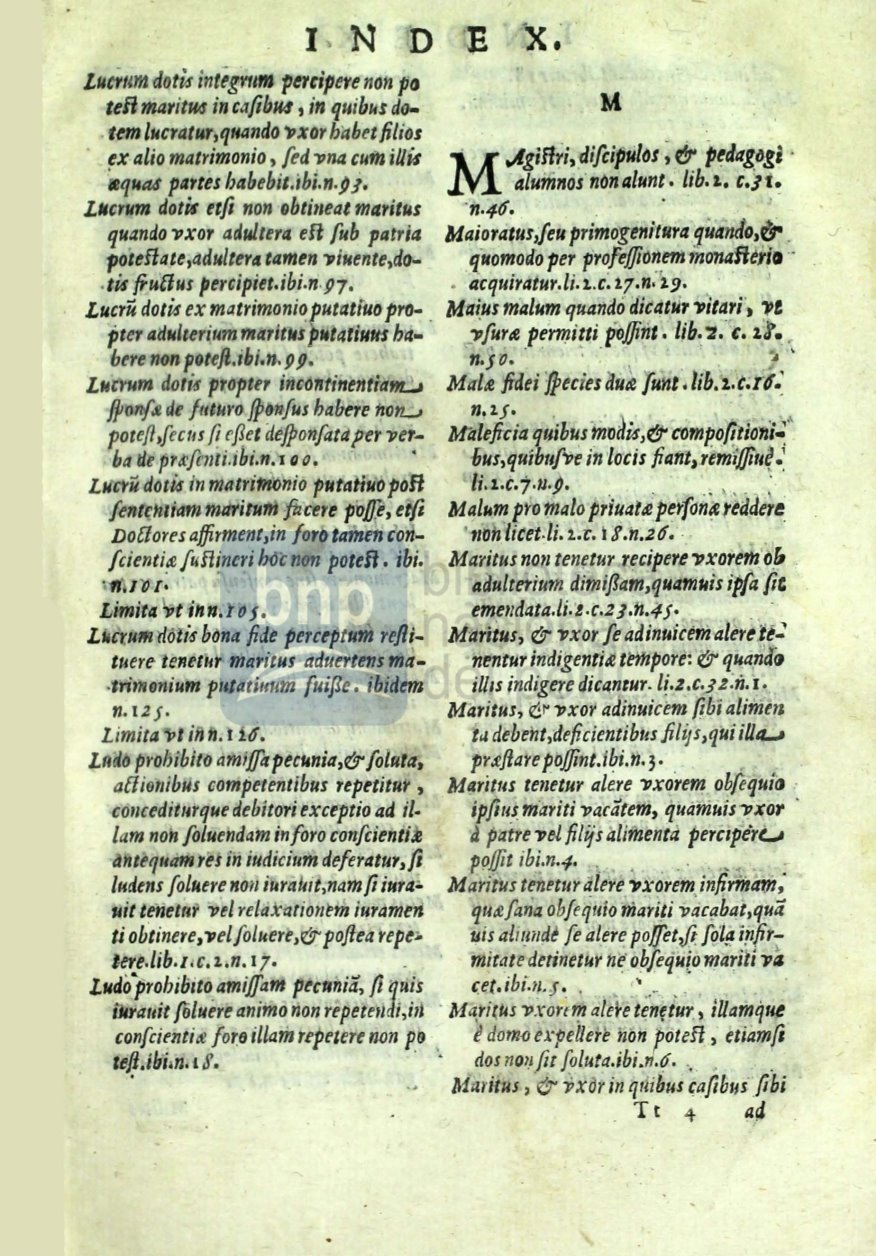 INDEX.
Lucrum dotis integrum percipere non po
test maritus in casibus, in quibus do-
tem lucratur, quando vxor habet filios
ex alio matrimonio, sed vna cum illis
æquas partes habebit. ibi. n. 93.
Lucrum dotis etsi non obtineat maritus
quando vxor adultera est sub patria
potestate, adultera tamen viuente, do-
tis fructus percipiet. ibi. n 97.
Lucrū dotis ex matrimonio putatiuo pro-
pter adulterium maritus putatiuus ha-
bere non potest. ibi. n. 99.
Lucrum dotis propter incontinentiam
sponsæ de futuro sponsus habere non
potest, secus si esset desponsata per ver-
ba de præsenti. ibi. n. 100.
Lucrū dotis in matrimonio putatiuo post
sententiam maritum facere posse, etsi
Doctores affirment, in foro tamen con-
scientiæ sustineri hoc non potest. ibi.
n. 101.
Limita vt in n. 105.
Lucrum dotis bona fide perceptum resti-
tuere tenetur maritus aduertens ma-
trimonium putatiuum fuisse. ibidem
n. 125.
Limita vt in n. 126.
Ludo prohibito amissa pecunia, & soluta,
actionibus competentibus repetitur,
concediturque debitori exceptio ad il-
lam non soluendam in foro conscientiæ
antequam res in iudicium deferatur, si
ludens soluere non iurauit, nam si iura-
uit tenetur vel relaxationem iuramen
ti obtinere, vel soluere, & postea repe-
tere. lib. 1. c. 2. n. 17.
Ludo prohibito amissam pecuniā, si quis
iurauit soluere animo non repetendi, in
conscientiæ foro illam repetere non po
test. ibi. n. 18.
M
MAgistri, discipulos, & pedagogi
alumnos non alunt. lib. 2. c. 31.
n. 46.
Maioratus, seu primogenitura quando, &
quomodo per professionem monasterio
acquiratur. li. 2. c. 27. n. 29.
Maius malum quando dicatur vitari, vt
vsuræ permitti possint. lib. 2. c. 28.
n. 50.
Malæ fidei species duæ sunt. lib. 2. c. 16.
n. 25.
Maleficia quibus modis, & compositioni-
bus, quibusve in locis fiant, remissiuè.
li. 2. c. 7. n. 9.
Malum pro malo priuatæ personæ reddere
non licet. li. 2. c. 18. n. 26.
Maritus non tenetur recipere vxorem ob
adulterium dimissam, quamuis ipsa sit
emendata. li. 2. c. 23. n. 45.
Maritus, & vxor se adinuicem alere te-
nentur indigentiæ tempore: & quando
illis indigere dicantur. li. 2. c. 32. n. 1.
Maritus, & vxor adinuicem sibi alimen
ta debent, deficientibus filijs, qui illa
præstare possint. ibi. n. 3.
Maritus tenetur alere vxorem obsequio
ipsius mariti vacātem, quamuis vxor
à patre vel filijs alimenta percipere
possit ibi. n. 4.
Maritus tenetur alere vxorem infirmam,
quæ sana obsequio mariti vacabat, quā
uis aliundè se alere posset, si sola infir-
mitate detinetur ne obsequio mariti va
cet. ibi. n. 5.
Maritus vxorem alere tenetur, illamque
è domo expellere non potest, etiamsi
dos non sit soluta. ibi. n. 6.
Maritus, & vxor in quibus casibus sibi
Tt 4 ad